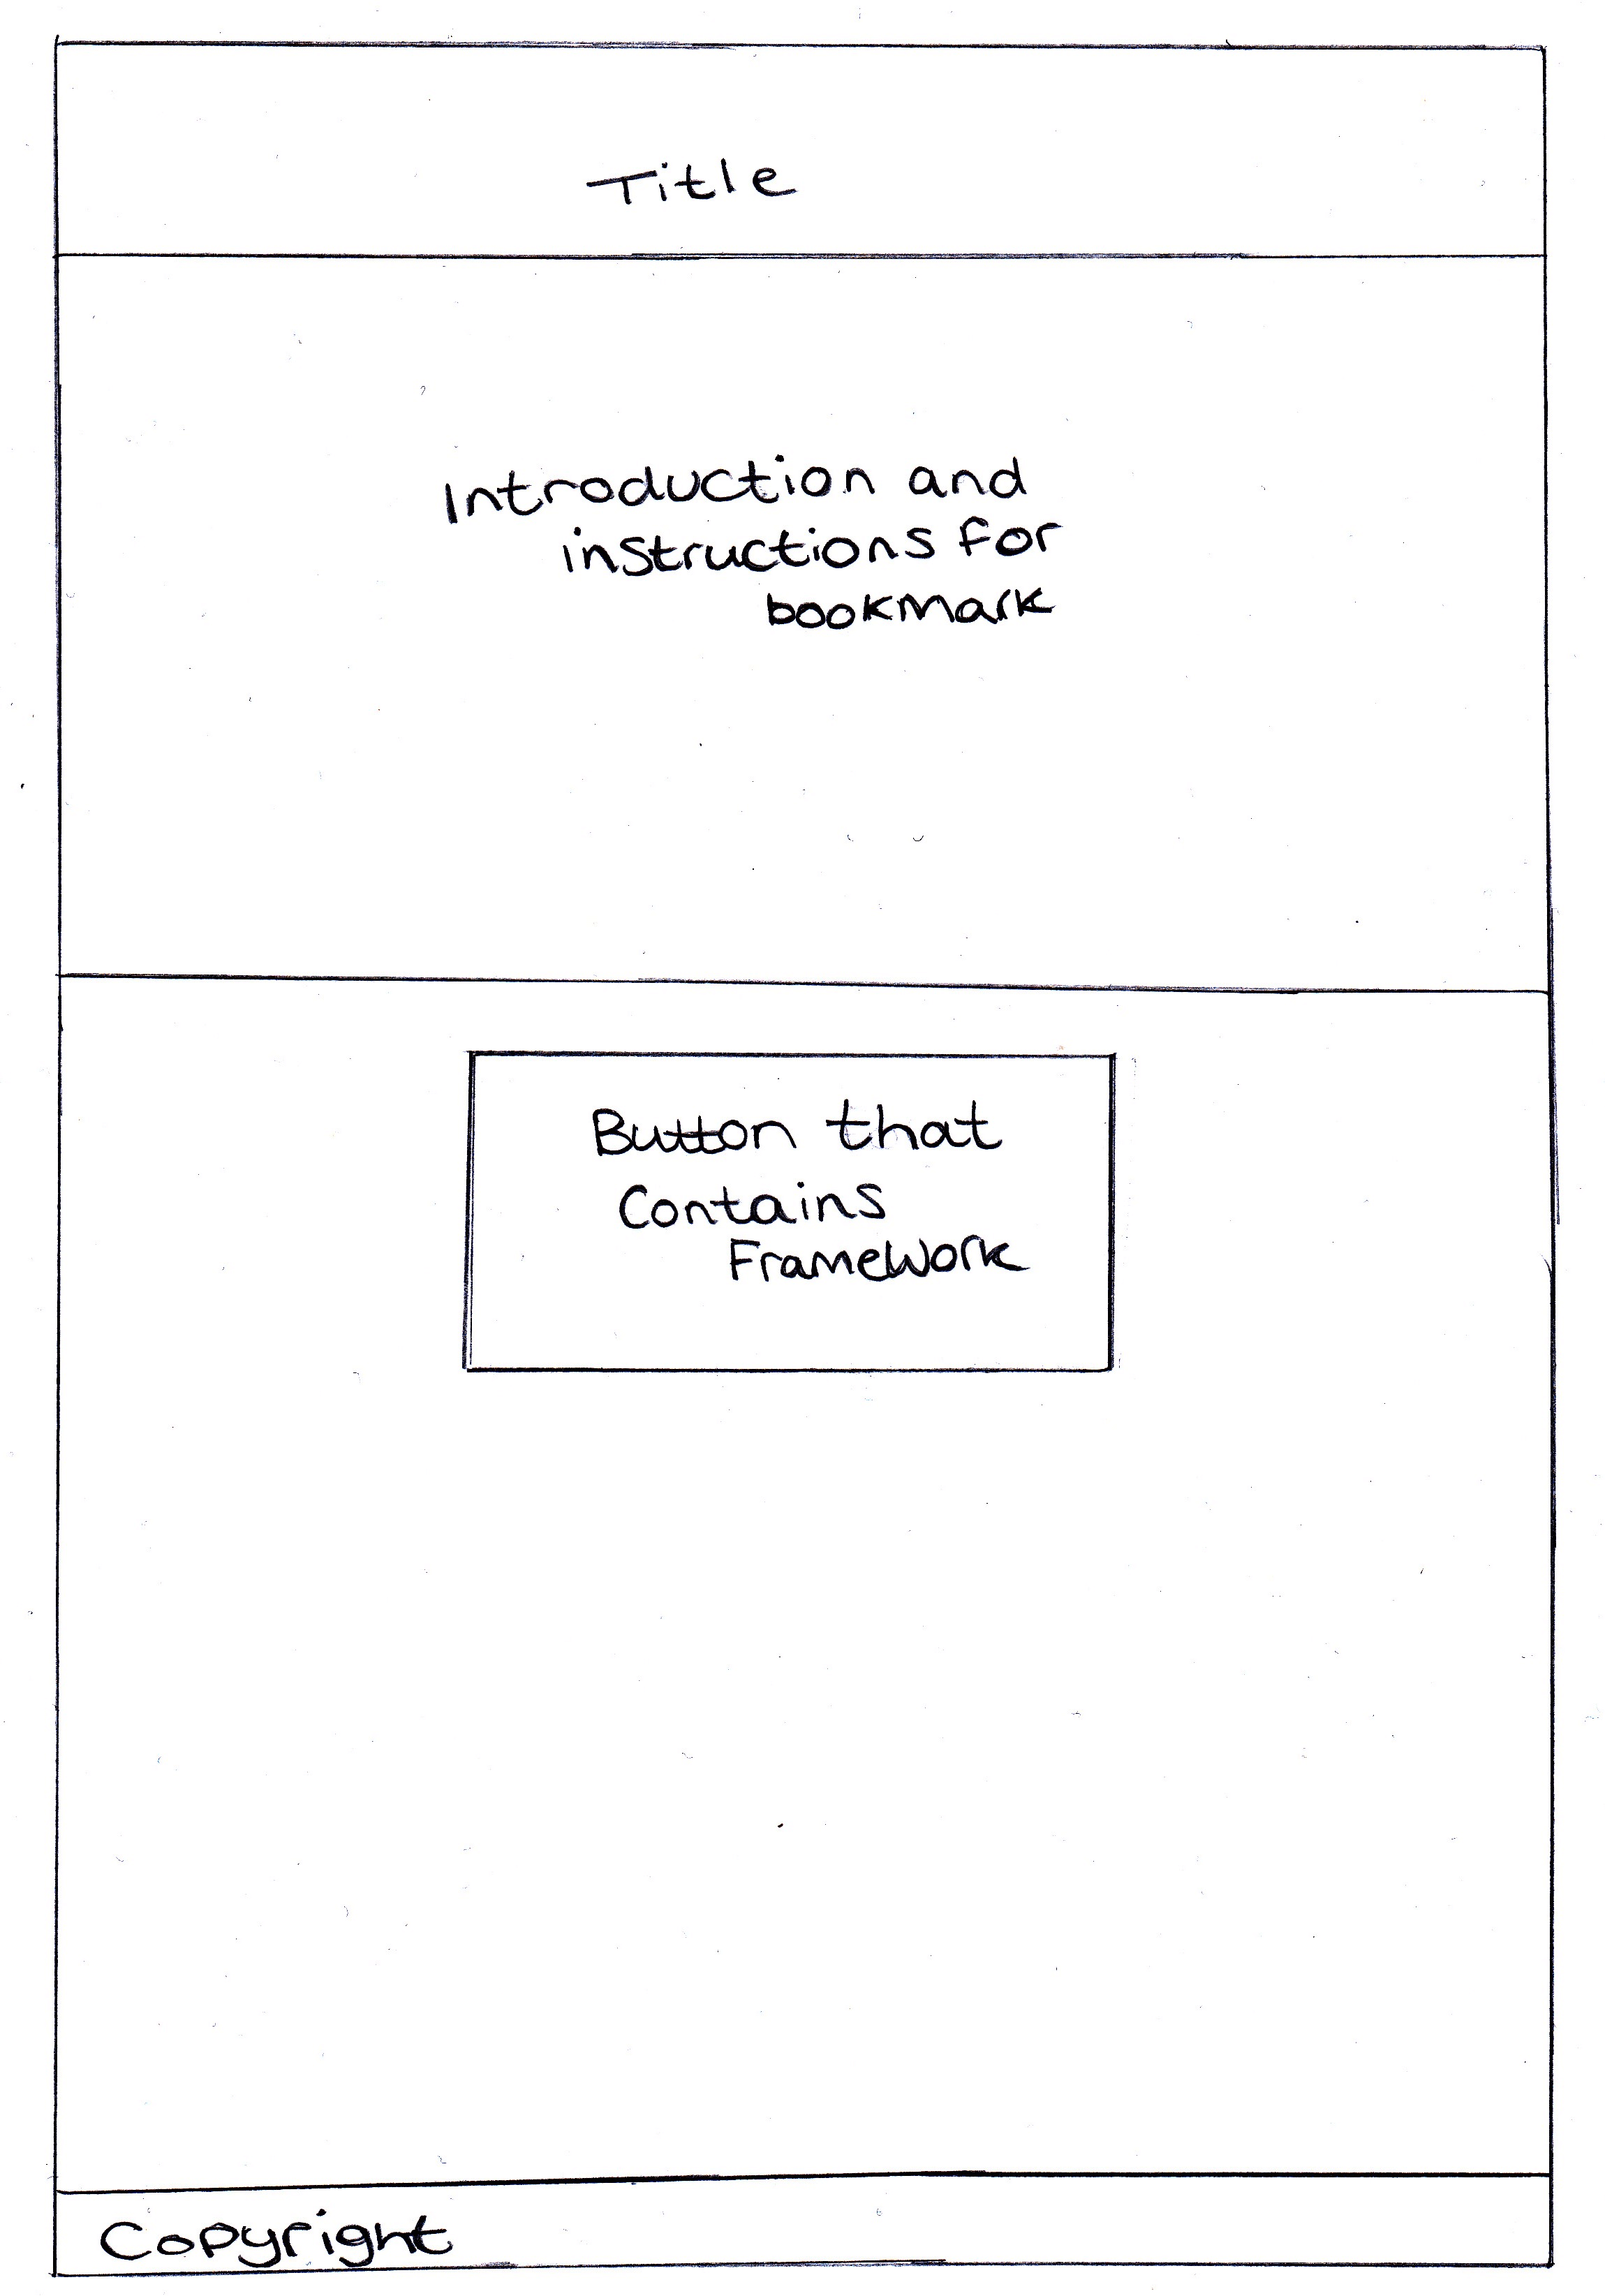 Title
Introduction and
instructions for
bookmark
Button that
Contains
Framework
Copyright